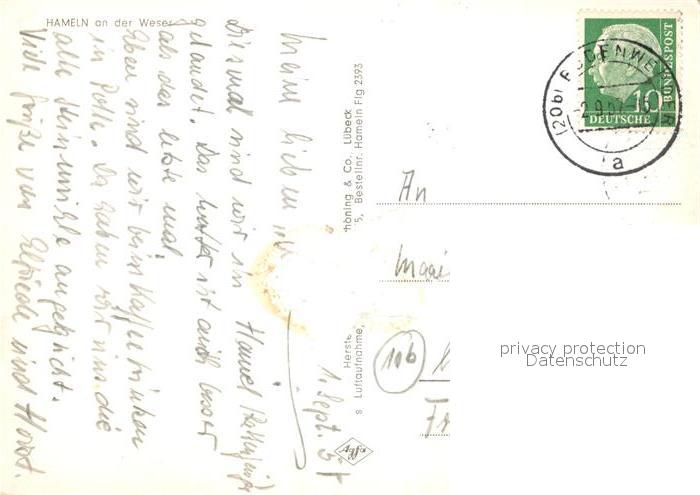 HAMELN an der Weser
1. Sept. 57
Meine lieben
Diesmal sind wir in Hameln
gelandet. Das Wetter ist auch besser
als das letzte mal.
Eben sind wir beim Kaffee trinken
in Polle. Da haben wir uns die
alte Steinmühle angeguckt.
Viele Grüße von Elfriede und Horst.
höning & Co., Lübeck
5, Bestellnr. Hameln Flg 2393
Herste
s Luftaufnahme,
Agfa
10
DEUTSCHE
BUNDESPOST
(20b) BODENWERDER
-2.9.57-
a
An
(10b)
Fr
privacy protection
Datenschutz